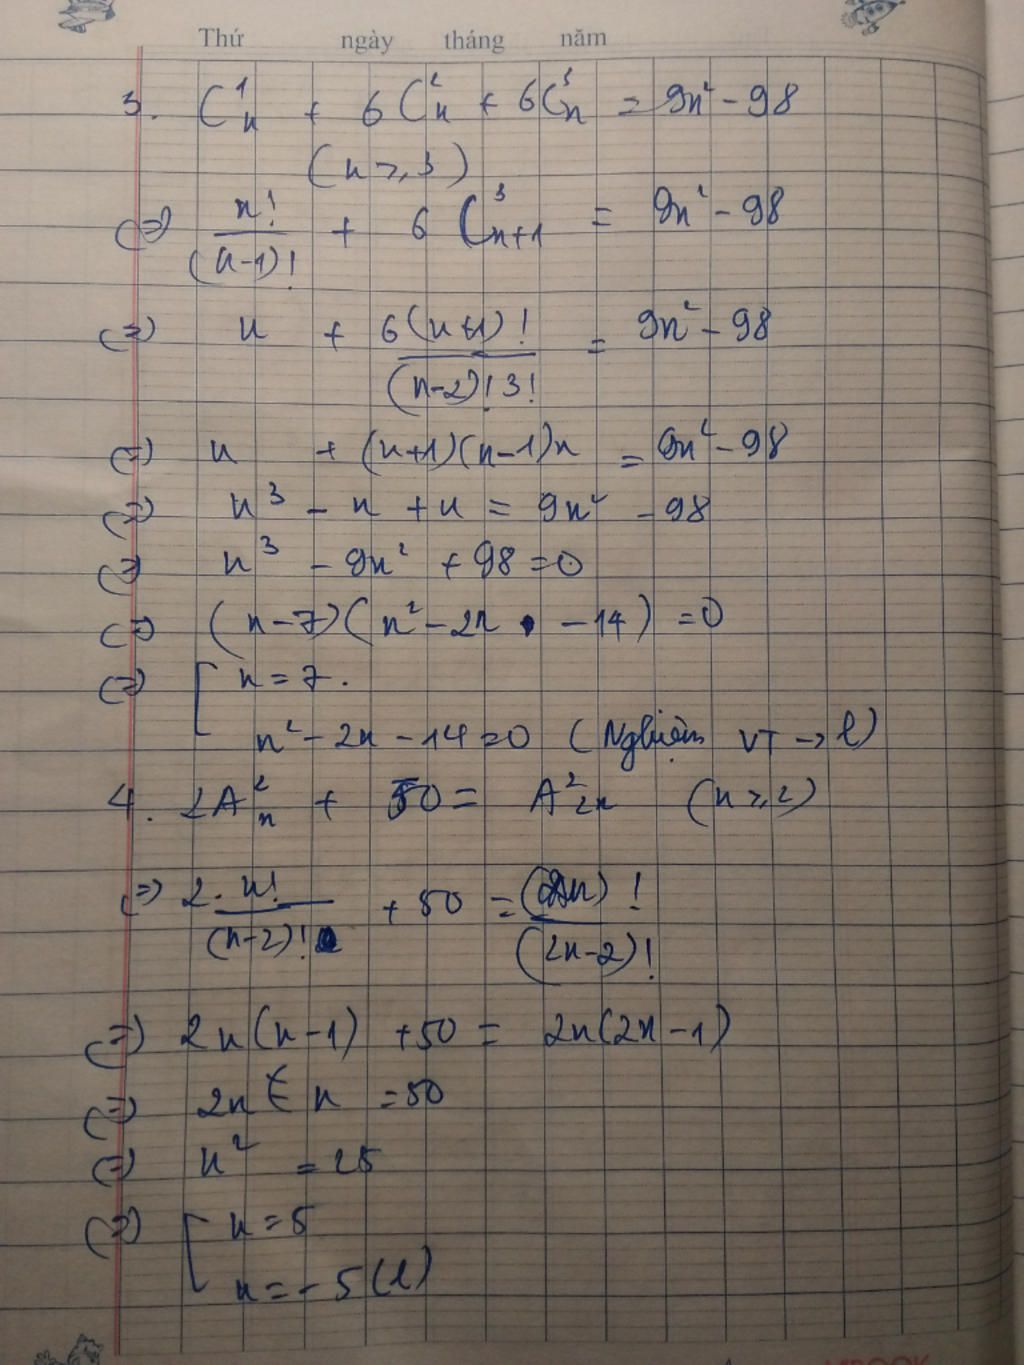 Thứ ngày tháng năm
3. C¹ₙ + 6C²ₙ + 6C³ₙ = 9n² - 98
(n ≥ 3)
(=) n!/(n-1)! + 6C³ₙ₊₁ = 9n² - 98
(=) n + 6(n+1)!/(n-2)!3! = 9n² - 98
(=) n + (n+1)(n-1)n = 9n² - 98
(=) n³ - n + n = 9n² - 98
(=) n³ - 9n² + 98 = 0
(=) (n-7)(n² - 2n - 14) = 0
(=) [ n = 7.
n² - 2n - 14 = 0 (Nghiệm VT → l)
4. 2A²ₙ + 50 = A²₂ₙ (n ≥ 2)
(=) 2.n!/(n-2)! + 50 = (2n)!/(2n-2)!
(=) 2n(n-1) + 50 = 2n(2n-1)
(=) 2n · n = 50
(=) n² = 25
(=) [ n = 5
n = -5 (l)